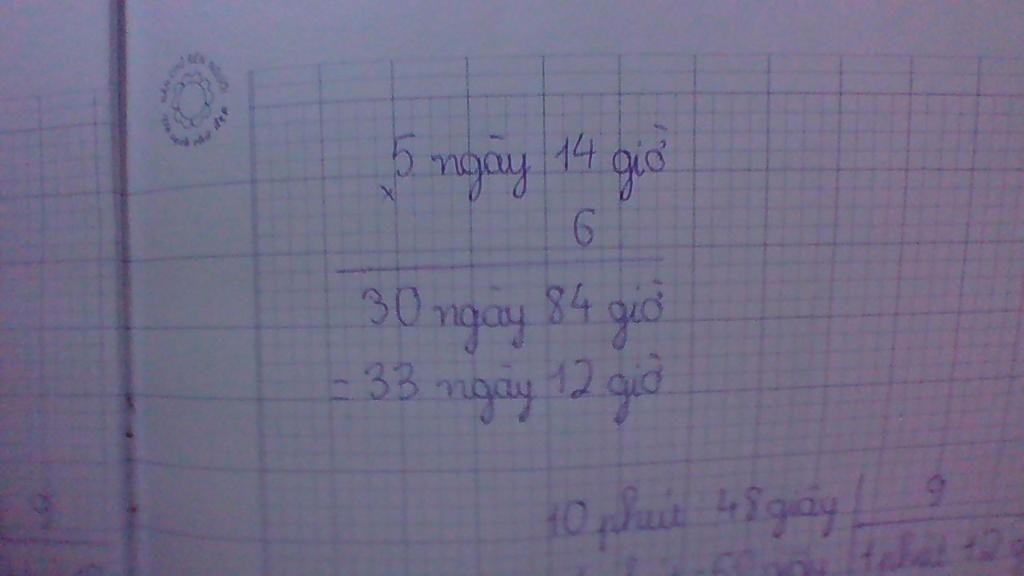 5 ngày 14 giờ
x
6
30 ngày 84 giờ
= 33 ngày 12 giờ
9
10 phút 48 giây 9
1 phút 12